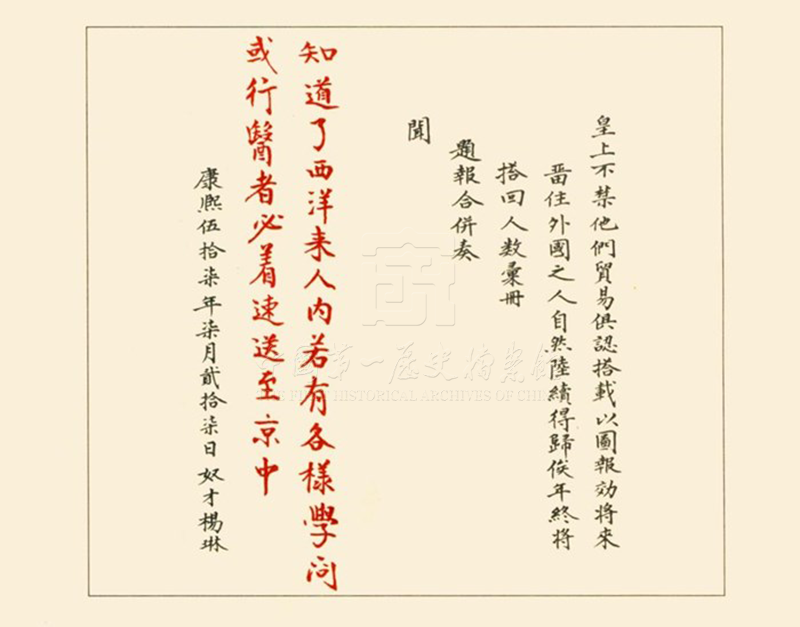 皇上不禁他們貿易俱認搭載以圖報効將來
畱住外國之人自然陸續得歸俟年終將
搭回人数彙冊
題報合併奏
聞
知道了西洋来人内若有各樣學问
或行醫者必着速送至京中
康熙伍拾柒年柒月貳拾柒日奴才楊琳
中國第一歷史檔案館
THE FIRST HISTORICAL ARCHIVES OF CHINA